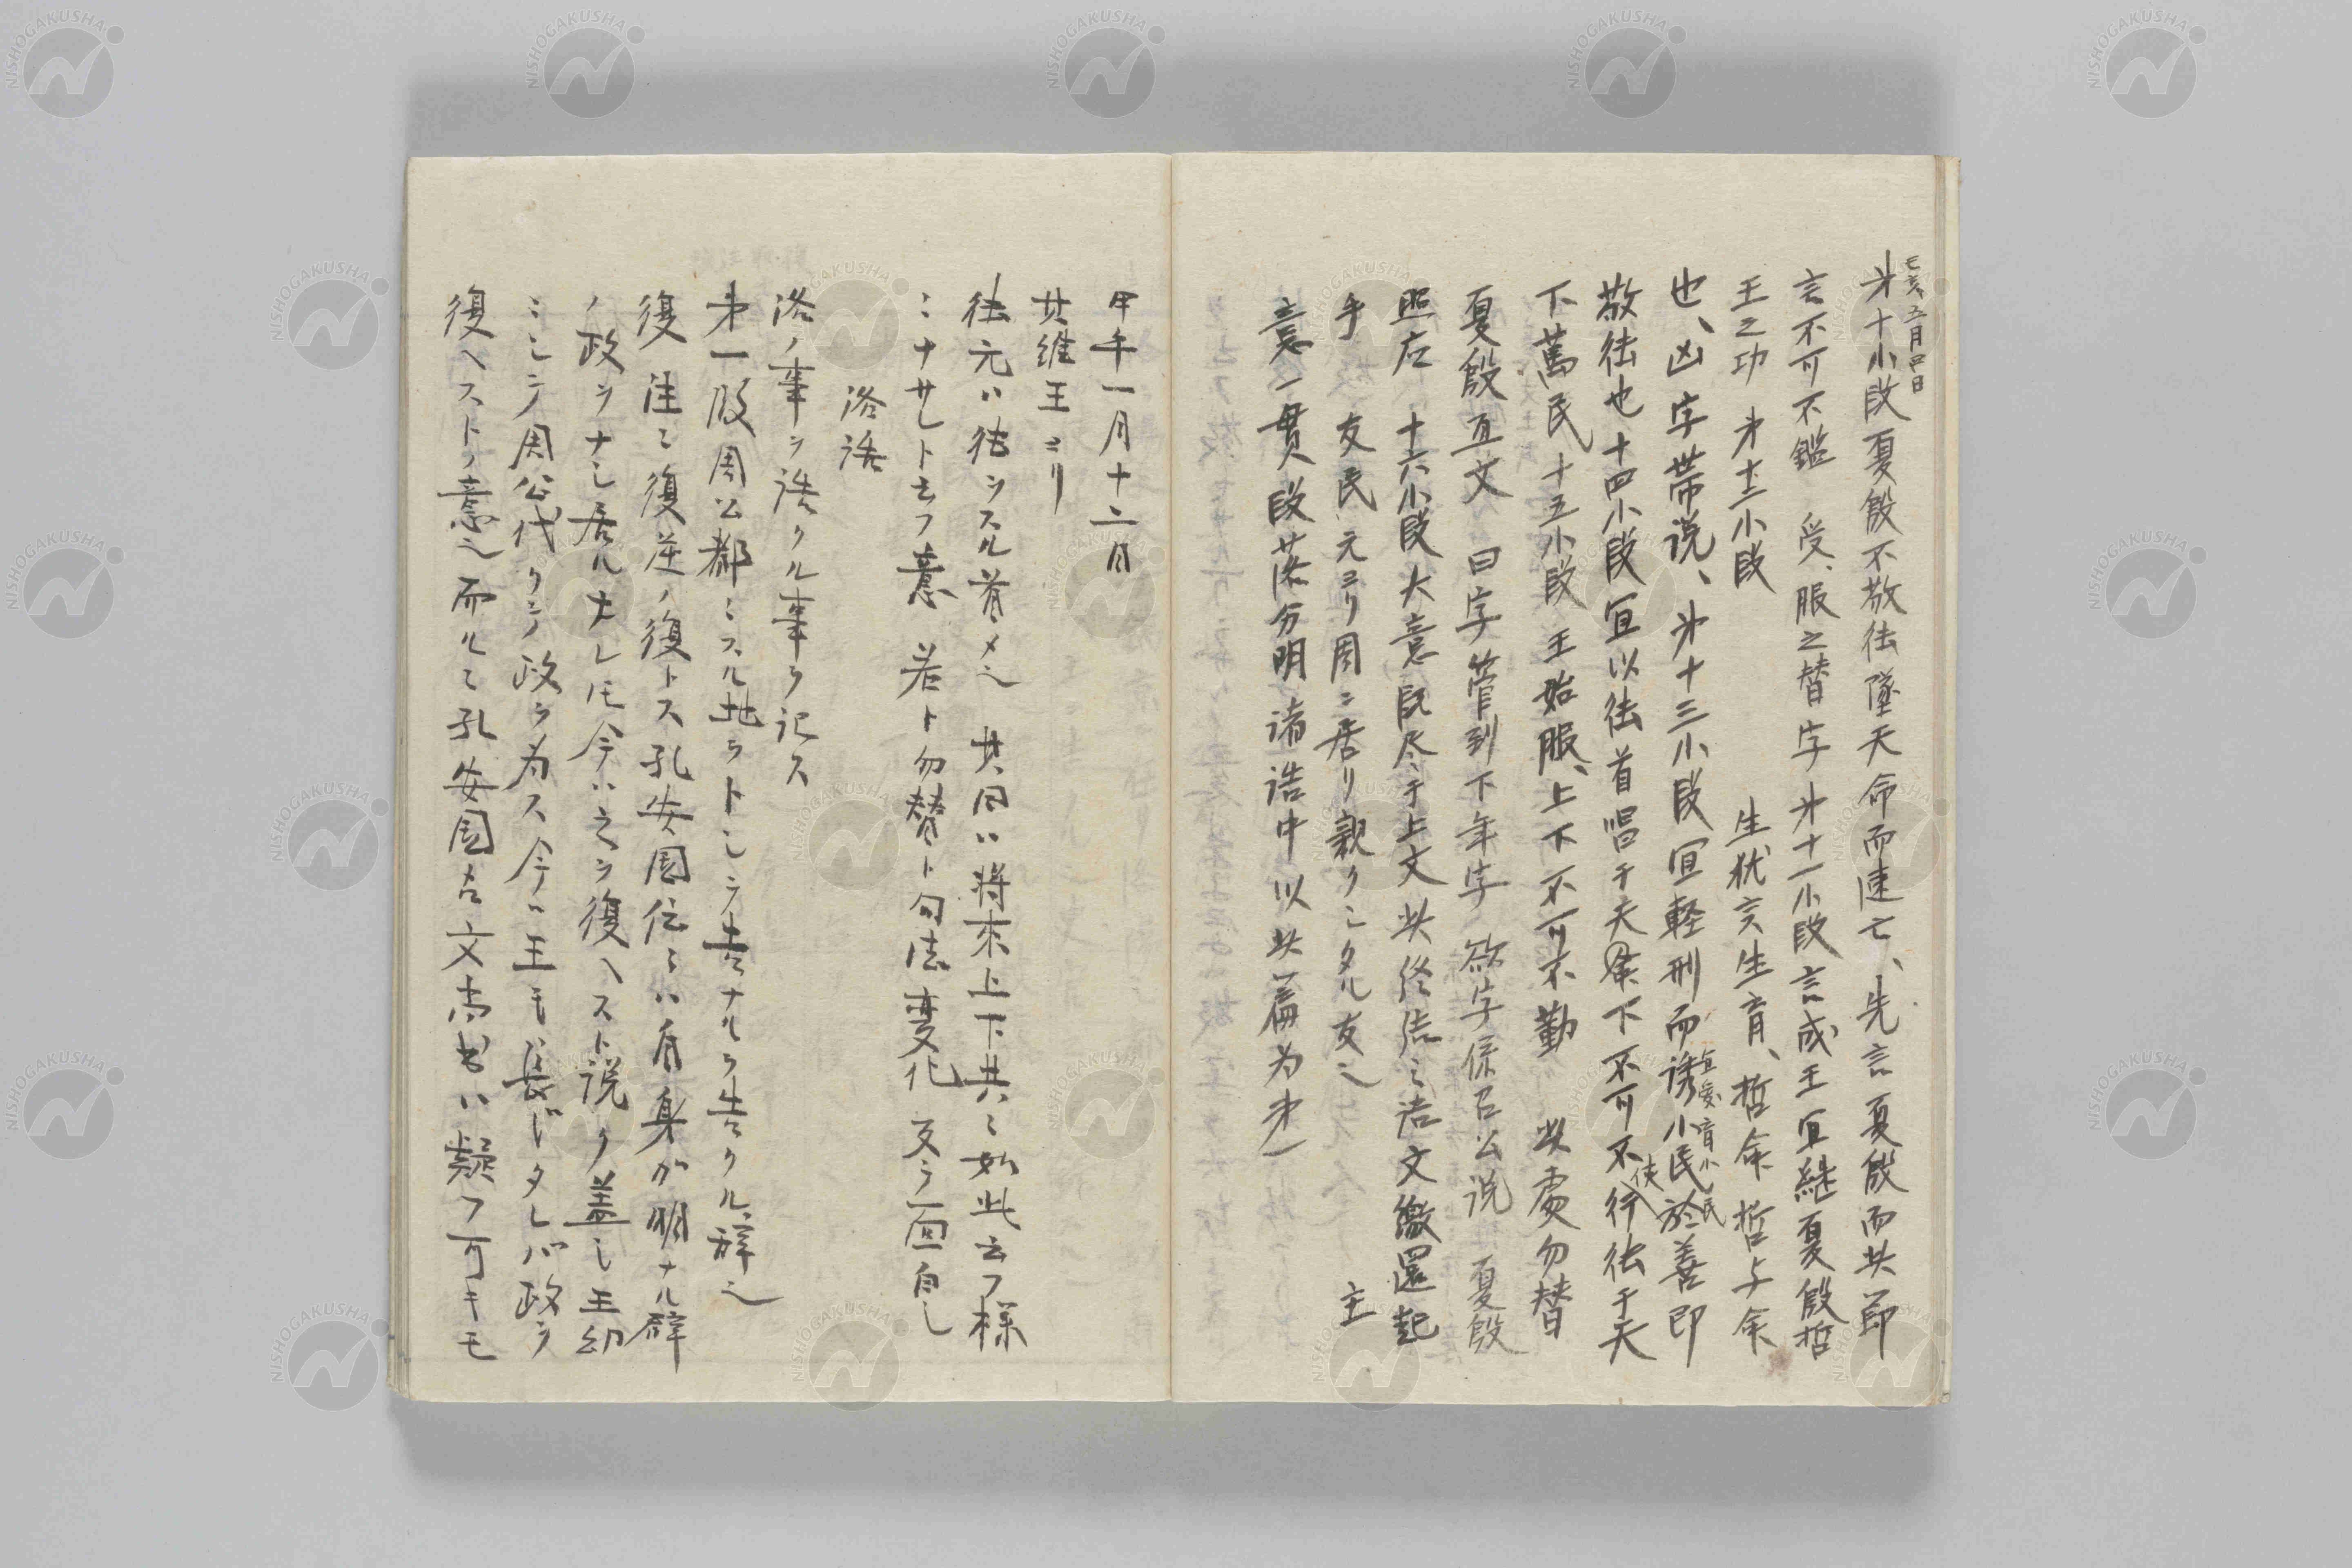 乇亥、五月四日
才十小段夏殷不敬徳墜天命而速亡、先言夏殷而共節
言不可不鑑 受、服之替字才十一小段言成王宜継夏殷哲
王之功 才十二小段 生犹言生育、哲命哲与命
也、凶字帯説、才十三小段宜軽刑而誘小民於善即
宜愛育小民
敬徳也十四小段宜以徳首唱于天下不可不行徳于天
使
下萬民 十五小段 王始服、上下不可不勤 此処勿替
夏殷互文 曰字管到下年字 欲字係召公説 夏殷
照応 十六小段大意既尽于上文此終結之語文繳還起
手 友民元ヨリ周ニ居リ親クシタル友也 主
意一貫段落分明諸誥中以此篇為才一
甲午一月十二日
其維王ヨリ
徳元ハ徳ヲスル首メ也 其曰ハ将来上下共ニ如此云フ様
ニナサレト云フ意 若ト勿替ト句法変化 反ラ面白し
洛誥
洛ノ事ヲ誥クル事ヲ記ス
才一段周公都ニスル地ヲトシテ吉ナルヲ告クル辞也
復 注ニ復逆ノ復トス孔安国伝ニハ君身ガ明ナル辟
ノ政ヲナシ居ルナレ𪜈今ハ之ヲ復ヘスト説ク蓋し王幼
ニシテ周公代クシテ政ヲ為ス今ハ王モ長ジタレバ政ヲ
復ヘストノ意也而ルニ孔安国古文尚書ハ疑フ可キモ